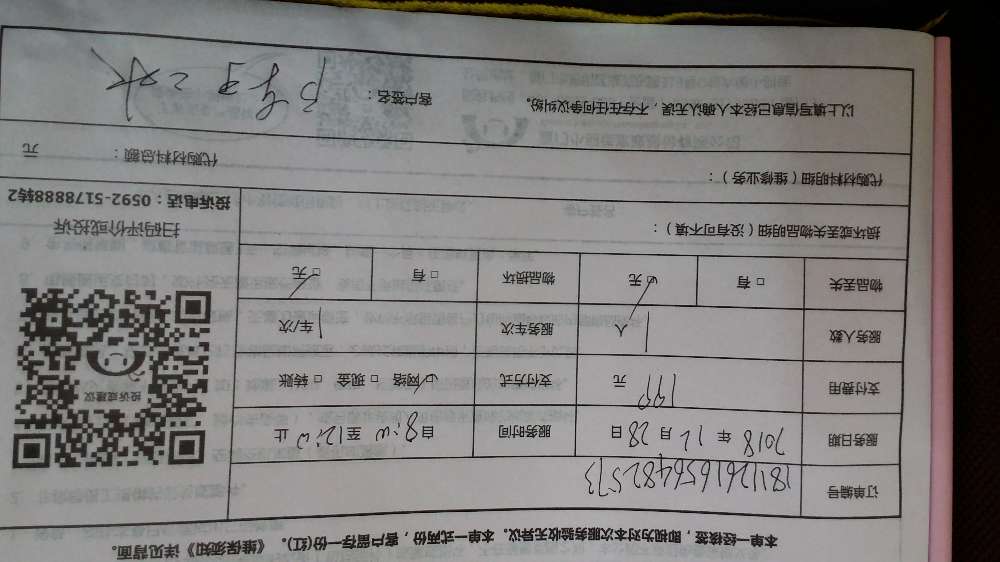 本单一经核签，即视为对本次服务验收无异议。本单一式两份，客户留存一份(红)。《维保须知》详见背面。
订单编号 181126165648 2573
服务日期 2018 年 12 月 28 日 服务时间 自 8:00 至 12:00 止
支付费用 199 元 支付方式 ☑ 网络 □ 现金 □ 转账
服务人数 1 人 服务车次 1 车/次
物品丢失 □ 有 ☑ 无 物品损坏 □ 有 ☑ 无
投诉或建议
损坏或丢失物品明细（没有可不填）：
扫码评价或投诉
投诉电话：0592-5178888转2
代购材料明细（维修业务）：
代购材料总额： 元
以上填写信息已经本人确认无误，不存在任何争议纠纷。
客户签名：